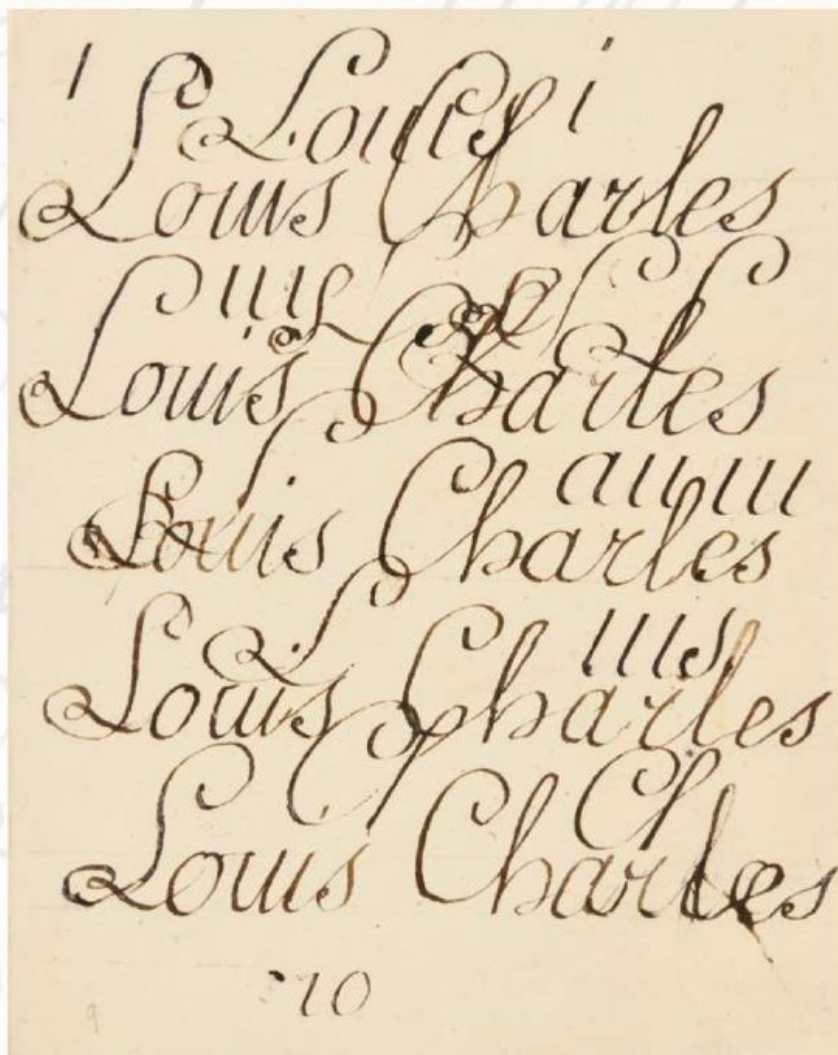 Louis
Louis Charles
Louis Charles
Louis Charles
Louis Charles
Louis Charles
10
9